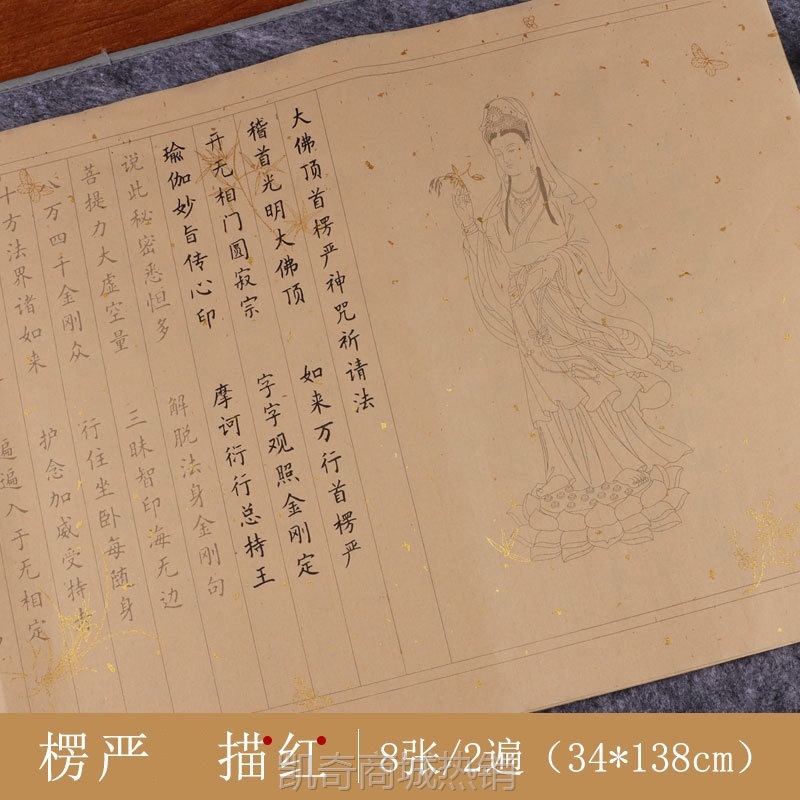 大佛顶首楞严神咒祈请法
稽首光明大佛顶 如来万行首楞严
开无相门圆寂宗 字字观照金刚定
瑜伽妙旨传心印 摩诃衍行总持王
说此秘密悉怛多 解脱法身金刚句
菩提力大虚空量 三昧智印海无边
八万四千金刚众 行住坐卧每随身
十方法界诸如来 护念加威受持者
遍入于无相定
楞严 描红 8张/2遍（34*138cm）
凯奇商城热销